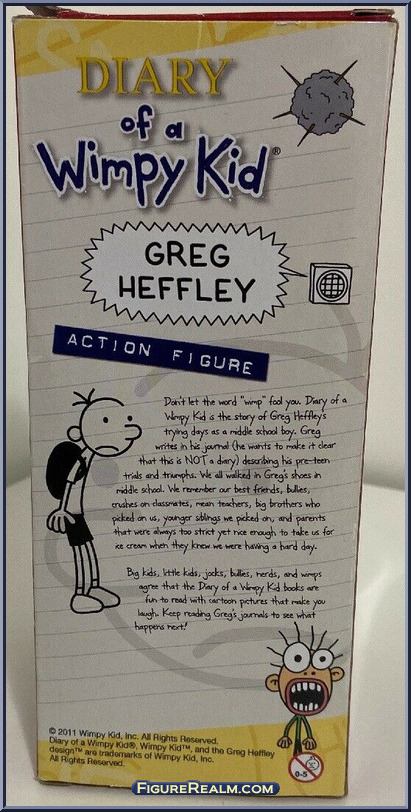 DIARY
of a
Wimpy Kid®
GREG
HEFFLEY
ACTION FIGURE
Don't let the word "wimp" fool you. Diary of a
Wimpy Kid is the story of Greg Heffley's
trying days as a middle school boy. Greg
writes in his journal (he wants to make it clear
that this is NOT a diary) describing his pre-teen
trials and triumphs. We all walked in Greg's shoes in
middle school. We remember our best friends, bullies,
crushes on classmates, mean teachers, big brothers who
picked on us, younger siblings we picked on, and parents
that were always too strict yet nice enough to take us for
ice cream when they knew we were having a hard day.
Big kids, little kids, jocks, bullies, nerds, and wimps
agree that the Diary of a Wimpy Kid books are
fun to read with cartoon pictures that make you
laugh. Keep reading Greg's journals to see what
happens next!
© 2011 Wimpy Kid, Inc. All Rights Reserved.
Diary of a Wimpy Kid®, Wimpy Kid™, and the Greg Heffley
design™ are trademarks of Wimpy Kid, Inc.
All Rights Reserved.
0-5
FigureRealm.com